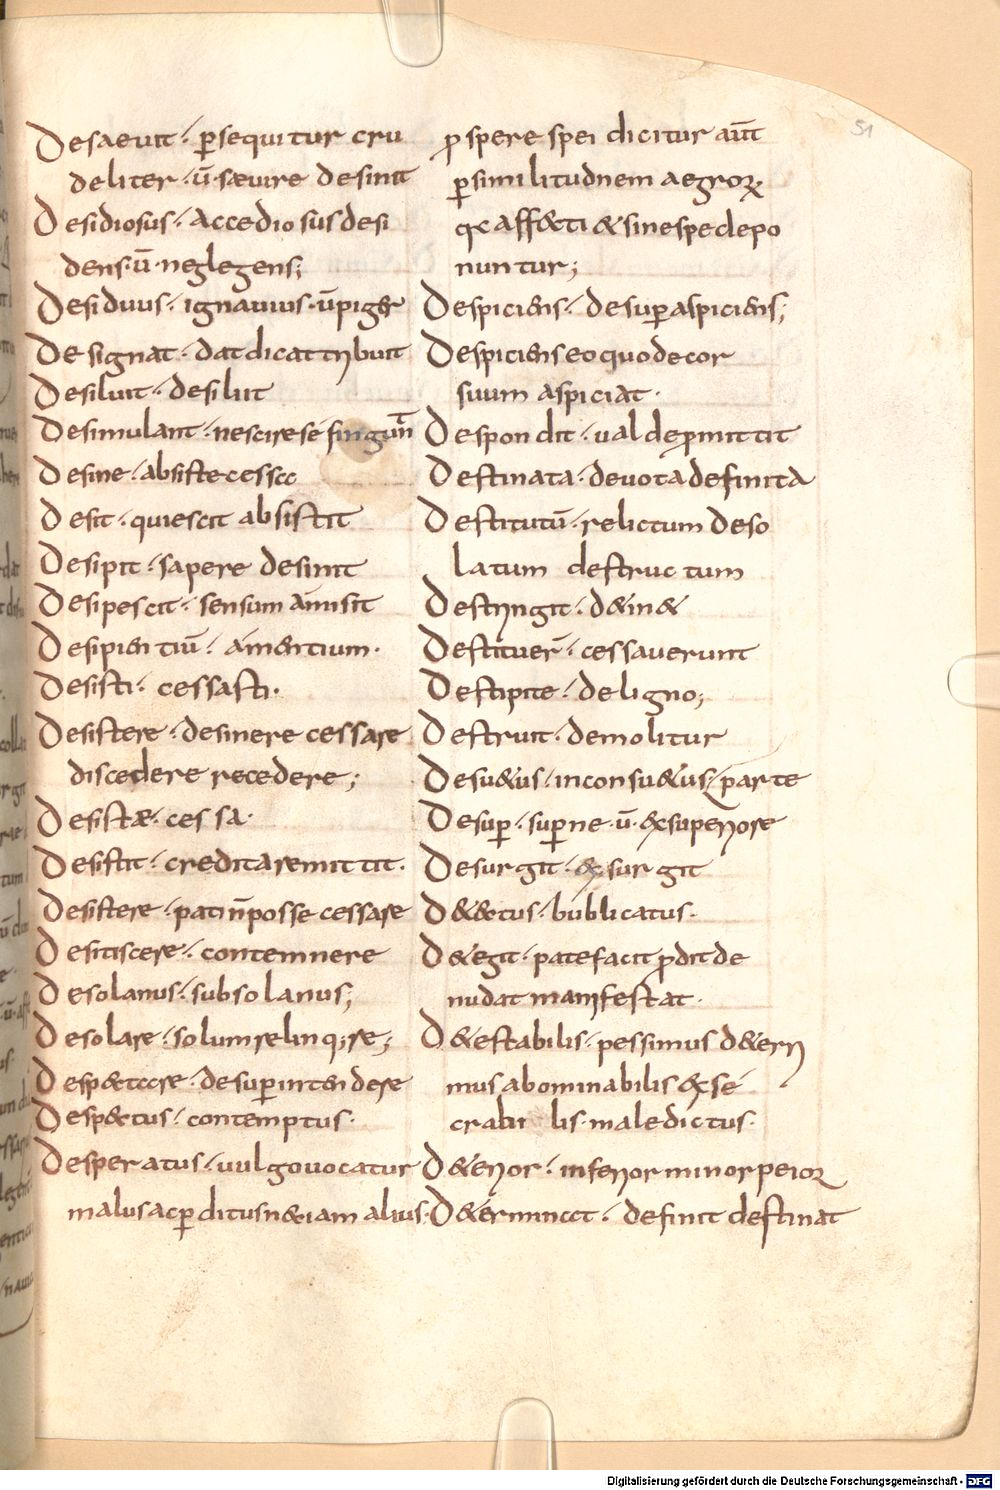 51
Desaeuit · p̲sequitur cru
deliter · ū · sæuire desinit
Desidiosus · accediosus desi
dens · ū · neglegens;
Desiduus · ignauus · ū piger
Designat · dat dicat tribuit
Desiluit · desiluit
Desimulant · nescire se fingunt̄
Desine · absiste cessa
Desit · quiescit absistit
Desipit · sapere desinit
Desipescit · sensum amisit
Desipientiū · amentium ·
Desisti · cessasti ·
Desistere · desinere cessare
discedere recedere;
Desistæ · cessa ·
Desistit · credita remittit ·
Desistere · pati n̄ posse cessare
Desitiscere · contemnere
Desolanus · subsolanus;
Desolare · solum relinq;re;
Desp&tare · desup̲intendere
Desp&tus · contemptus ·
Desperatus · uulgo uocatur
malus ac p̲ditus n& iam alius ·
ꝓspere spei dicitur aūt
p̲ similitudnem aegroꝝ
q affecti & sine spe depo
nuntur;
Despiciens · desup̲ aspiciens;
Despiciens eo quo decor
suum aspiciat ·
Despondit · ual de ꝓmittit
Destinata · deuota definita
Destitutū · relictum deso
latum destructum
Destringit · d&in&
Destituer̄ · cessauerunt
Destipite · de ligno;
Destruit · demolitur
Desu&us · inconsu&us parte
Desup̲ · sup̲ne · ū · exsuperiore
Desurgit · exsurgit
D&&tus · bublicatus ·
D&egit · patefacit ꝓdit de
nudat manifestat ·
D&estabilis · pessimus d&erri
mus abominabilis exse
crabilis · maledictus ·
D&erior · inferior minor peior
D&erminat · definit destinat
Digitalisierung gefördert durch die Deutsche Forschungsgemeinschaft - DFG